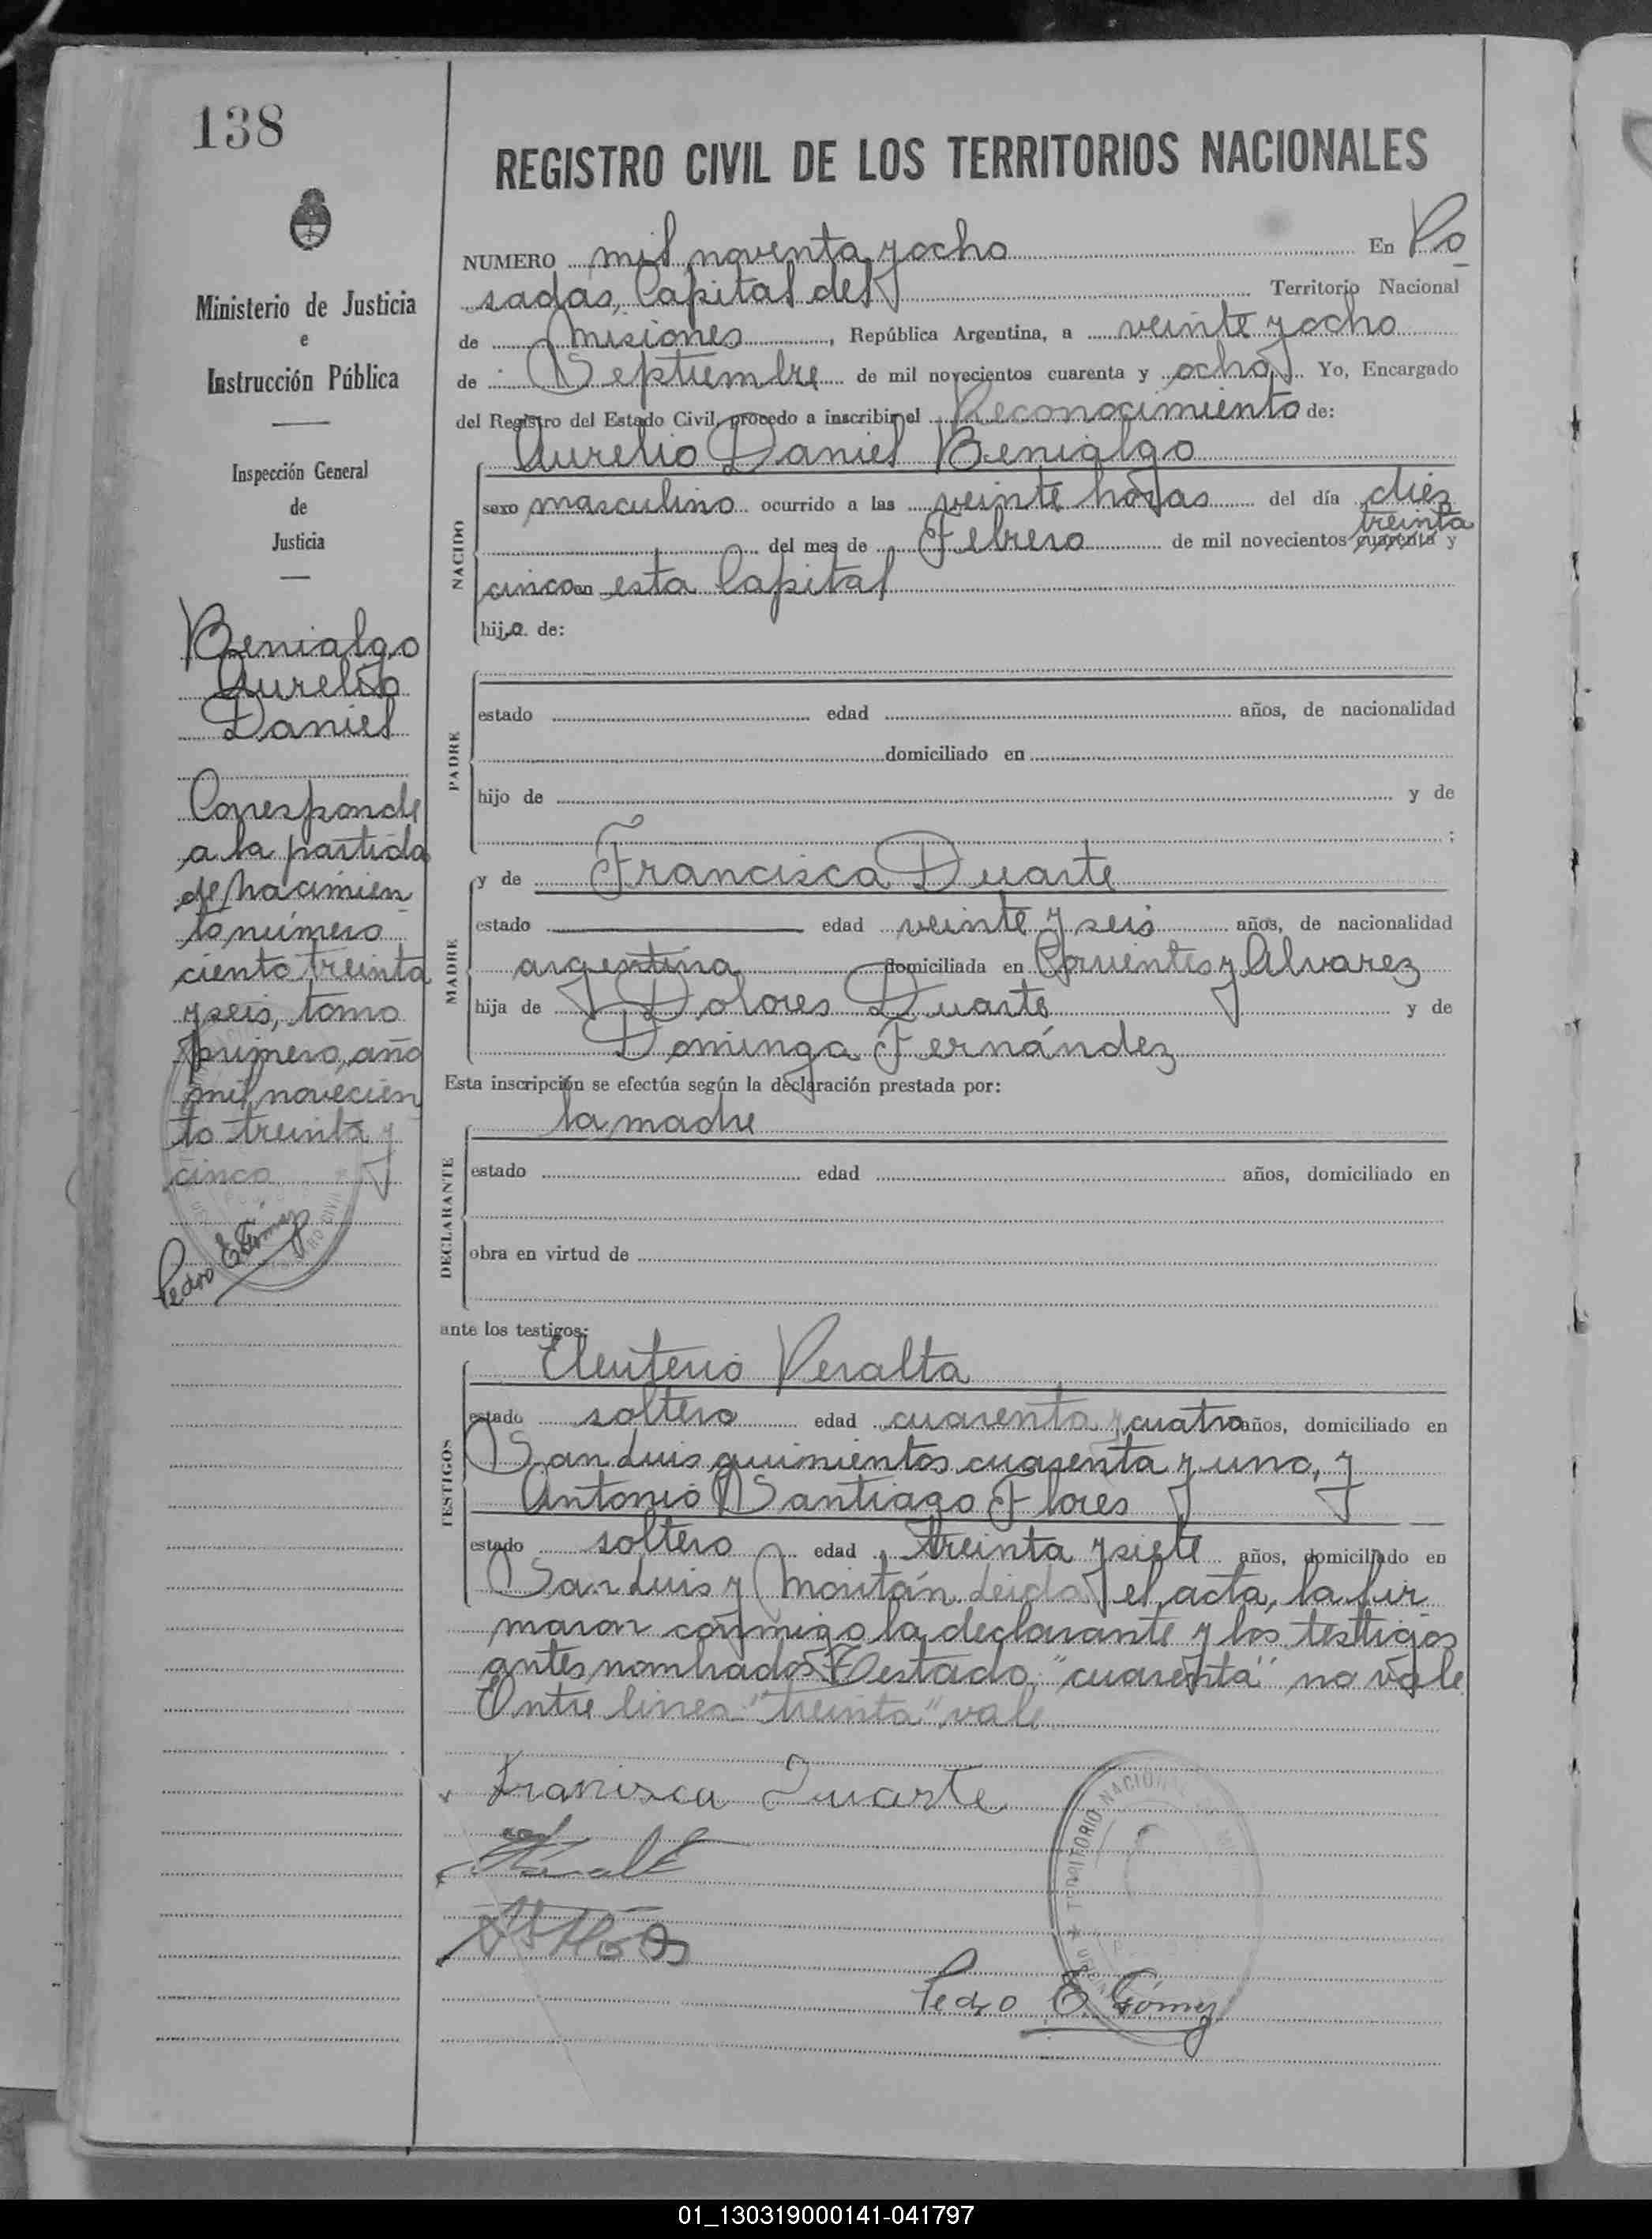 138
REGISTRO CIVIL DE LOS TERRITORIOS NACIONALES
Ministerio de Justicia
e
Instrucción Pública
Inspección General
de
Justicia
Benialgo
Aurelio
Daniel
Corresponde
a la partida
de nacimien
to número
ciento treinta
y seis, tomo
primero, año
mil novecien
to treinta y
cinco
Pedro E. Gómez
NUMERO mil noventa y ocho En Po
sadas, Capital del Territorio Nacional
de Misiones, República Argentina, a veinte y ocho
de Septiembre de mil novecientos cuarenta y ocho Yo, Encargado
del Registro del Estado Civil, procedo a inscribir el Reconocimiento de:
Aurelio Daniel Benialgo
NACIDO
sexo masculino ocurrido a las veinte horas del día diez
treinta
del mes de Febrero de mil novecientos cuarenta y
cinco en esta Capital
hijo de:
PADRE
estado edad años, de nacionalidad
domiciliado en
hijo de y de
;
MADRE
y de Francisca Duarte
estado edad veinte y seis años, de nacionalidad
argentina domiciliada en Corrientes y Alvarez
hija de Dolores Duarte y de
Dominga Fernández
Esta inscripción se efectúa según la declaración prestada por:
la madre
DECLARANTE
estado edad años, domiciliado en
obra en virtud de
ante los testigos:
TESTIGOS
Eleuterio Peralta
estado soltero edad cuarenta y cuatro años, domiciliado en
San Luis quinientos cuarenta y uno, y
Antonio Santiago Flores
estado soltero edad treinta y siete años, domiciliado en
San Luis y Moritán. Leida el acta, la fir
maron conmigo la declarante y los testigos
antes nombrados Testado "cuarenta" no vale
Entre linea "treinta" vale
Francisca Duarte
Pedro E. Gómez
TERRITORIO NACIONAL
01_130319000141-041797